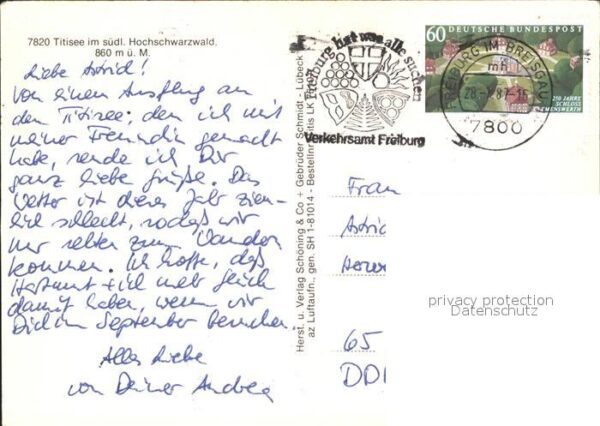 7820 Titisee im südl. Hochschwarzwald,
860 m ü. M.
Liebe Astrid!
Von einem Ausflug an
den Titisee, den ich mit
meiner Freundin gemacht
habe, sende ich Dir
ganz liebe Grüße. Das
Wetter ist dieses Jahr ziem-
lich schlecht, sodaß wir
nur selten zum Wandern
kommen. Ich hoffe, daß
Hartmut + ich mehr Glück
damit haben, wenn wir
Dich im September besuchen.
Alles Liebe
von Deiner Andrea
Herst. u. Verlag Schöning & Co + Gebrüder Schmidt - Lübeck
az Luftaufn., gen. SH 1-81014 - Bestellnr. Titis LK
Freiburg hat was alle suchen
Verkehrsamt Freiburg
60 DEUTSCHE BUNDESPOST
250 JAHRE
SCHLOSS
CLEMENSWERTH
FREIBURG IM BREISGAU
mh
28. 87-15
7800
Frau
Astrid
65
DD
privacy protection
Datenschutz